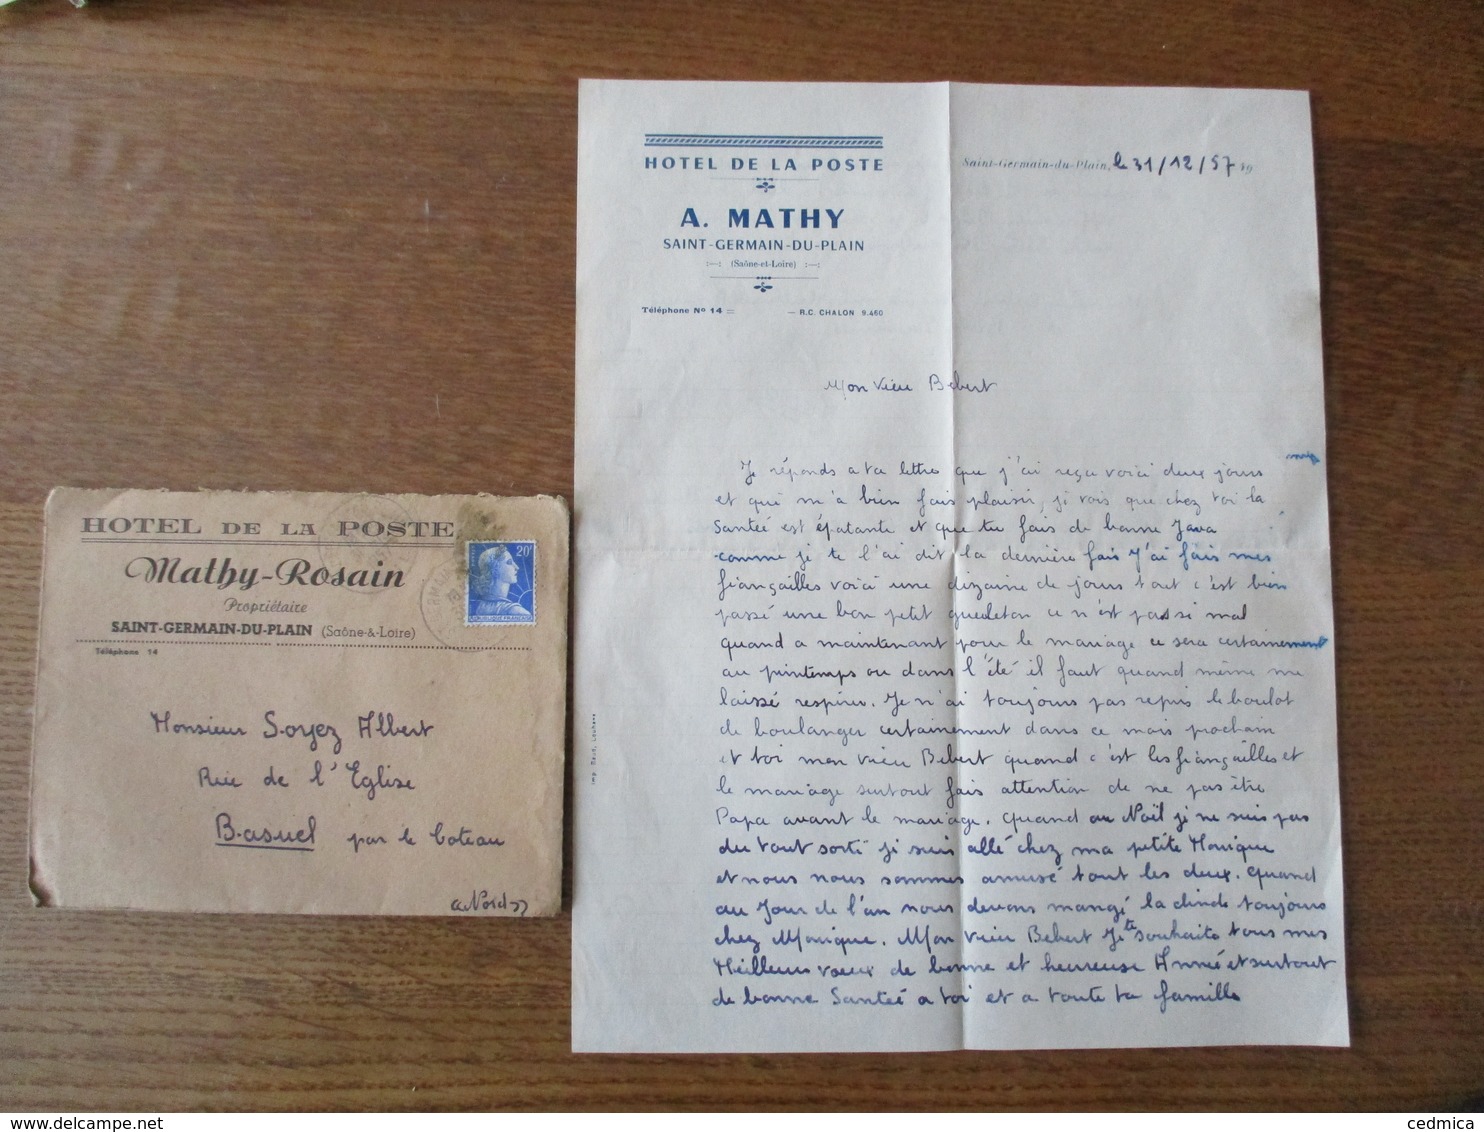 HOTEL DE LA POSTE
Mathy-Rosain
Propriétaire
SAINT-GERMAIN-DU-PLAIN (Saône-&-Loire)
Téléphone 14
20F
REPUBLIQUE FRANÇAISE
Monsieur Soyez Albert
Rue de l'Eglise
Basuel par le Cateau
Nord
HOTEL DE LA POSTE
A. MATHY
SAINT-GERMAIN-DU-PLAIN
(Saône-et-Loire)
Téléphone No 14 — R.C. CHALON 9.460
Saint-Germain-du-Plain, le 31/12/57 19
Mon vieu Bebert
Je réponds a ta lettre que j'ai reçu voici deux jours
et qui m'a bien fais plaisir, je vois que chez toi la
Santeé est épatante et que tu fais de bonne Java
comme je te l'ai dit la dernière fais J'ai fais mes
fiançailles voici une dizaine de jours tout c'est bien
passé une bon petit gueleton ce n'est pas si mal
quand a maintenant pour le mariage ce sera certainement
au printemps ou dans l'été il faut quand même me
laissé respirer. Je n'ai toujours pas repris le boulot
de boulanger certainement dans ce mois prochain
et toi mon vieu Bebert quand c'est les fiançailles et
le mariage surtout fais attention de ne pas être
Papa avant le mariage. Quand au Noël je ne suis pas
du tout sorti je suis allé chez ma petite Monique
et nous nous sommes amusé tout les deux. Quand
au Jour de l'an nous devons mangé la dinde toujours
chez Monique. Mon vieu Bebert Je te souhaite tous mes
Meilleurs vœux de bonne et heureuse Année et surtout
de bonne Santeé a toi et a toute ta famille
Imp. Louhans
cedmica
delcampe.net